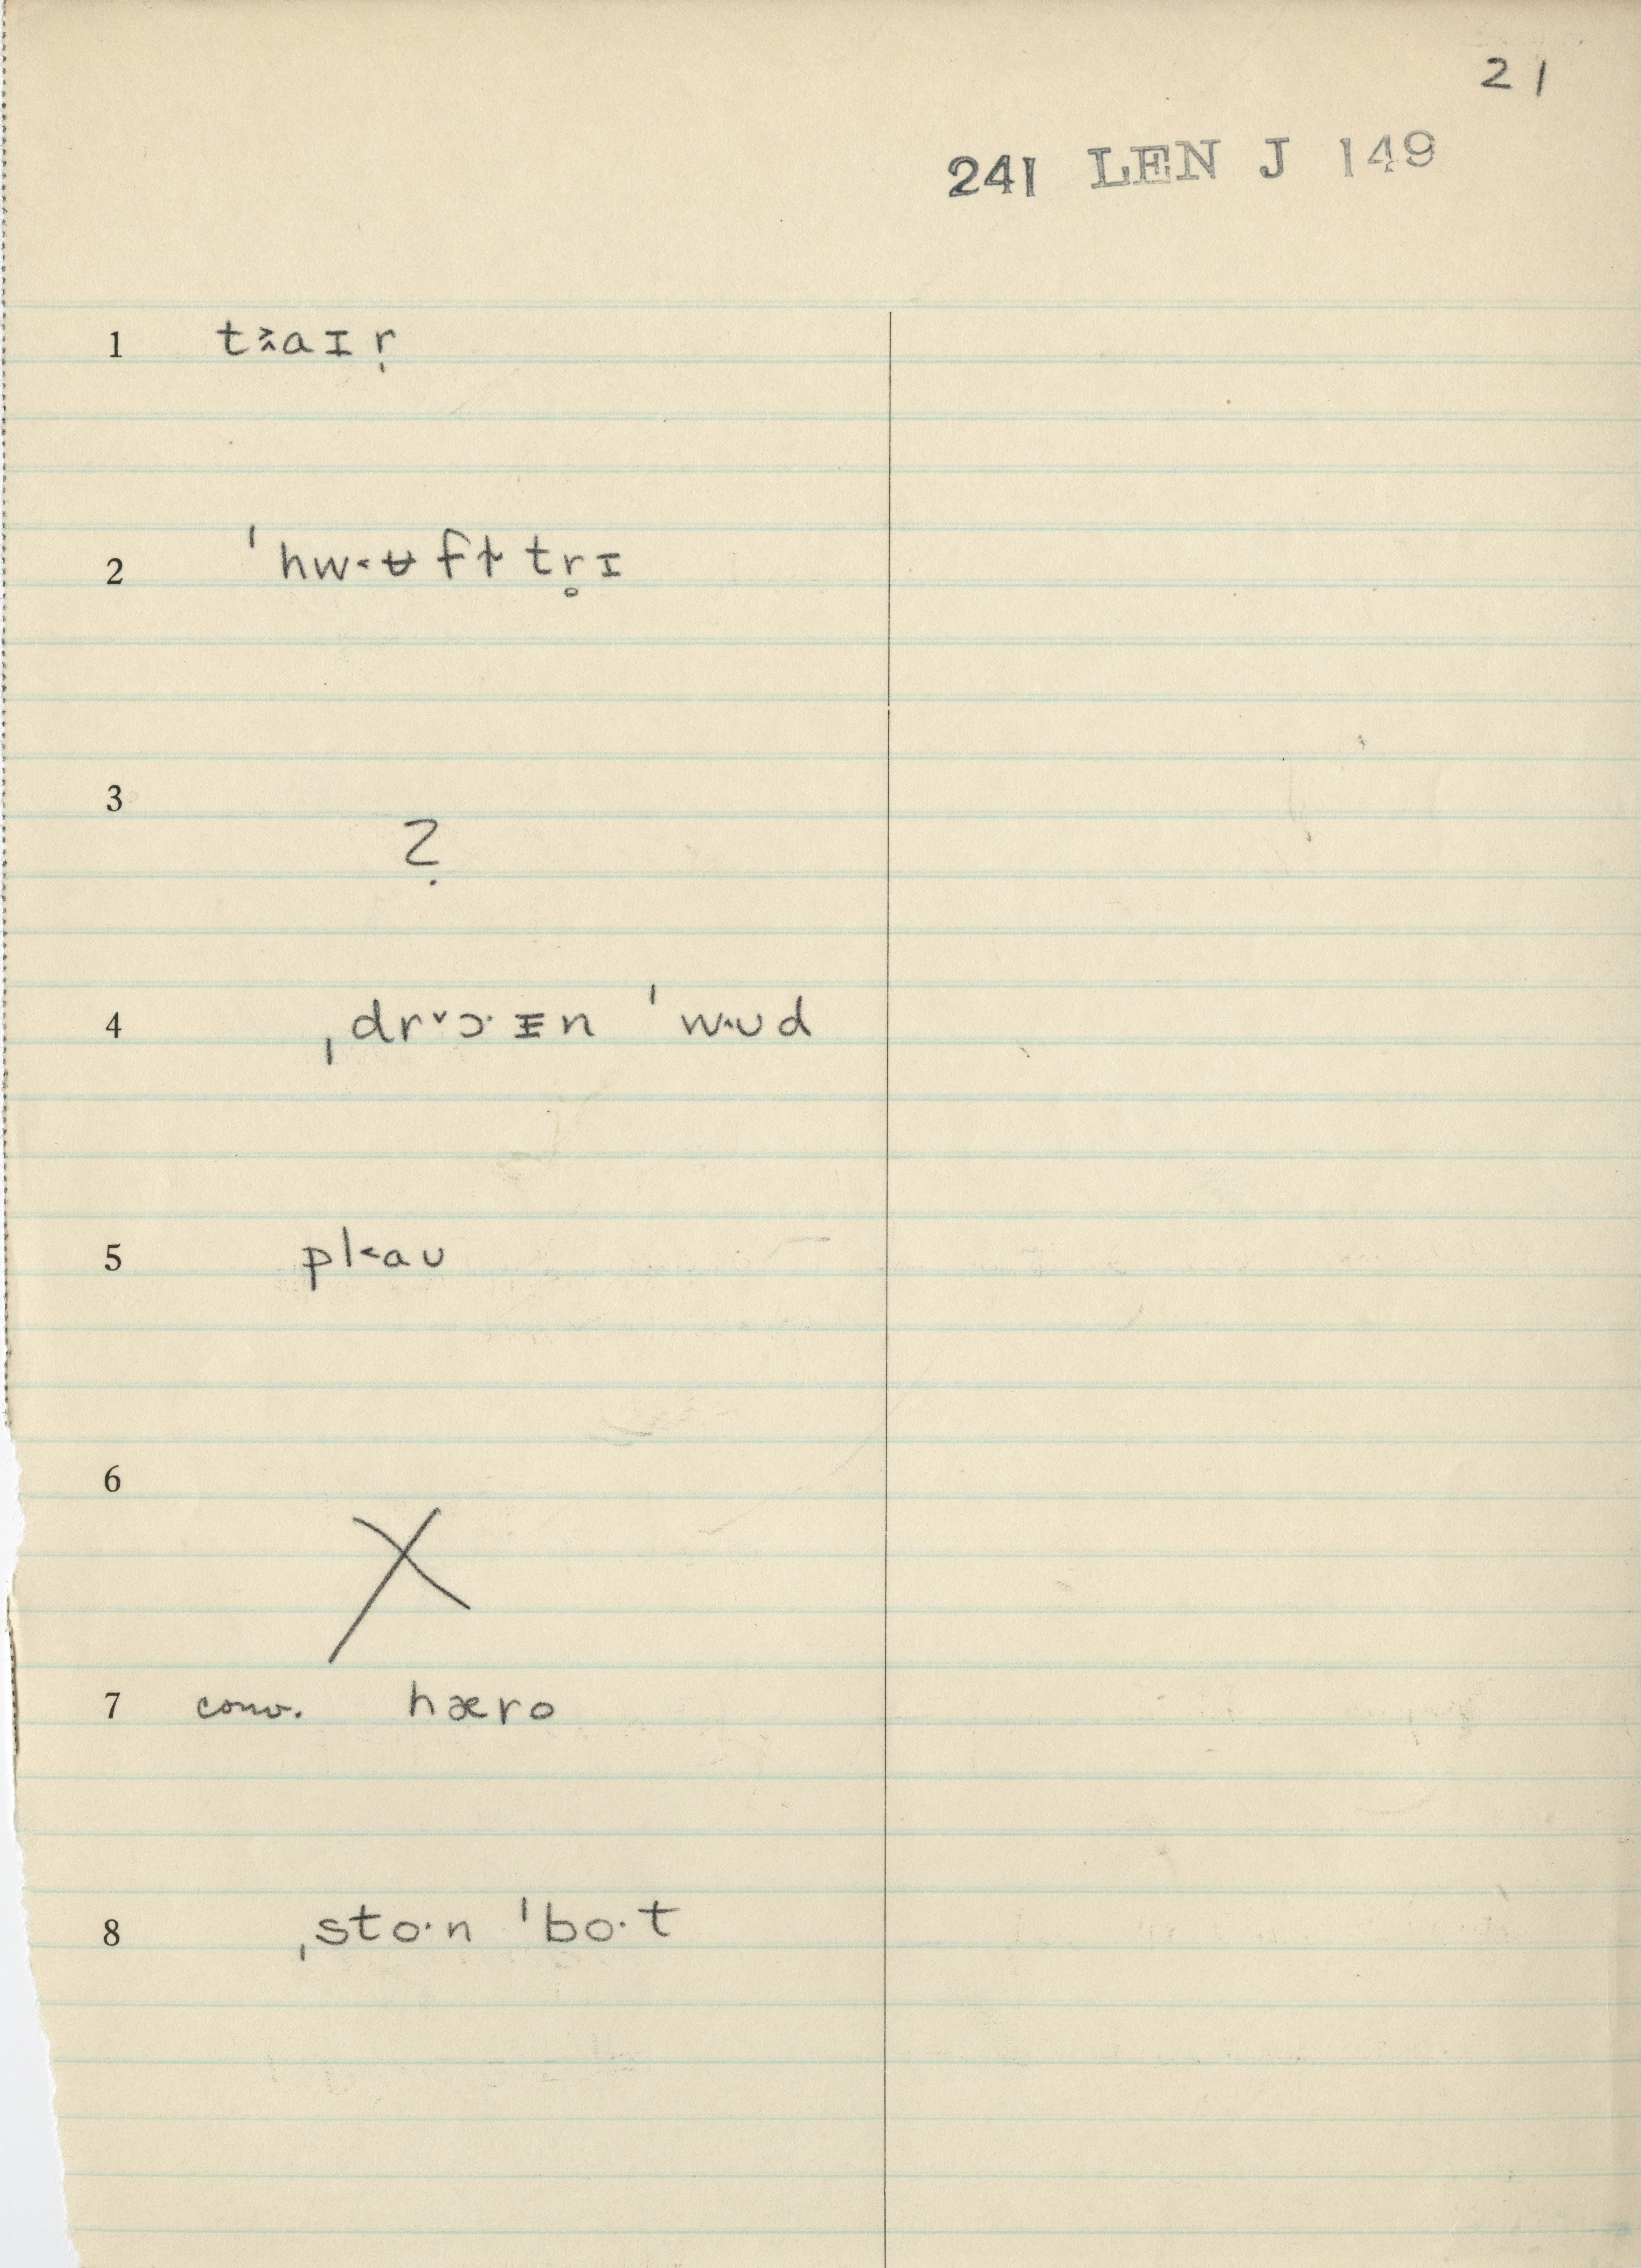 21
241 LEN J 149
1 t˃˄aɪṛ
2 ˈhw˂ʉftt̵r̥ɪ
3 ?
4 ˌdr˅ɔ·ᵻn ˈw˔ʊd
5 pl˂aʊ
6 X
7 conv. hæro
8 ˌsto·n ˈbo·t